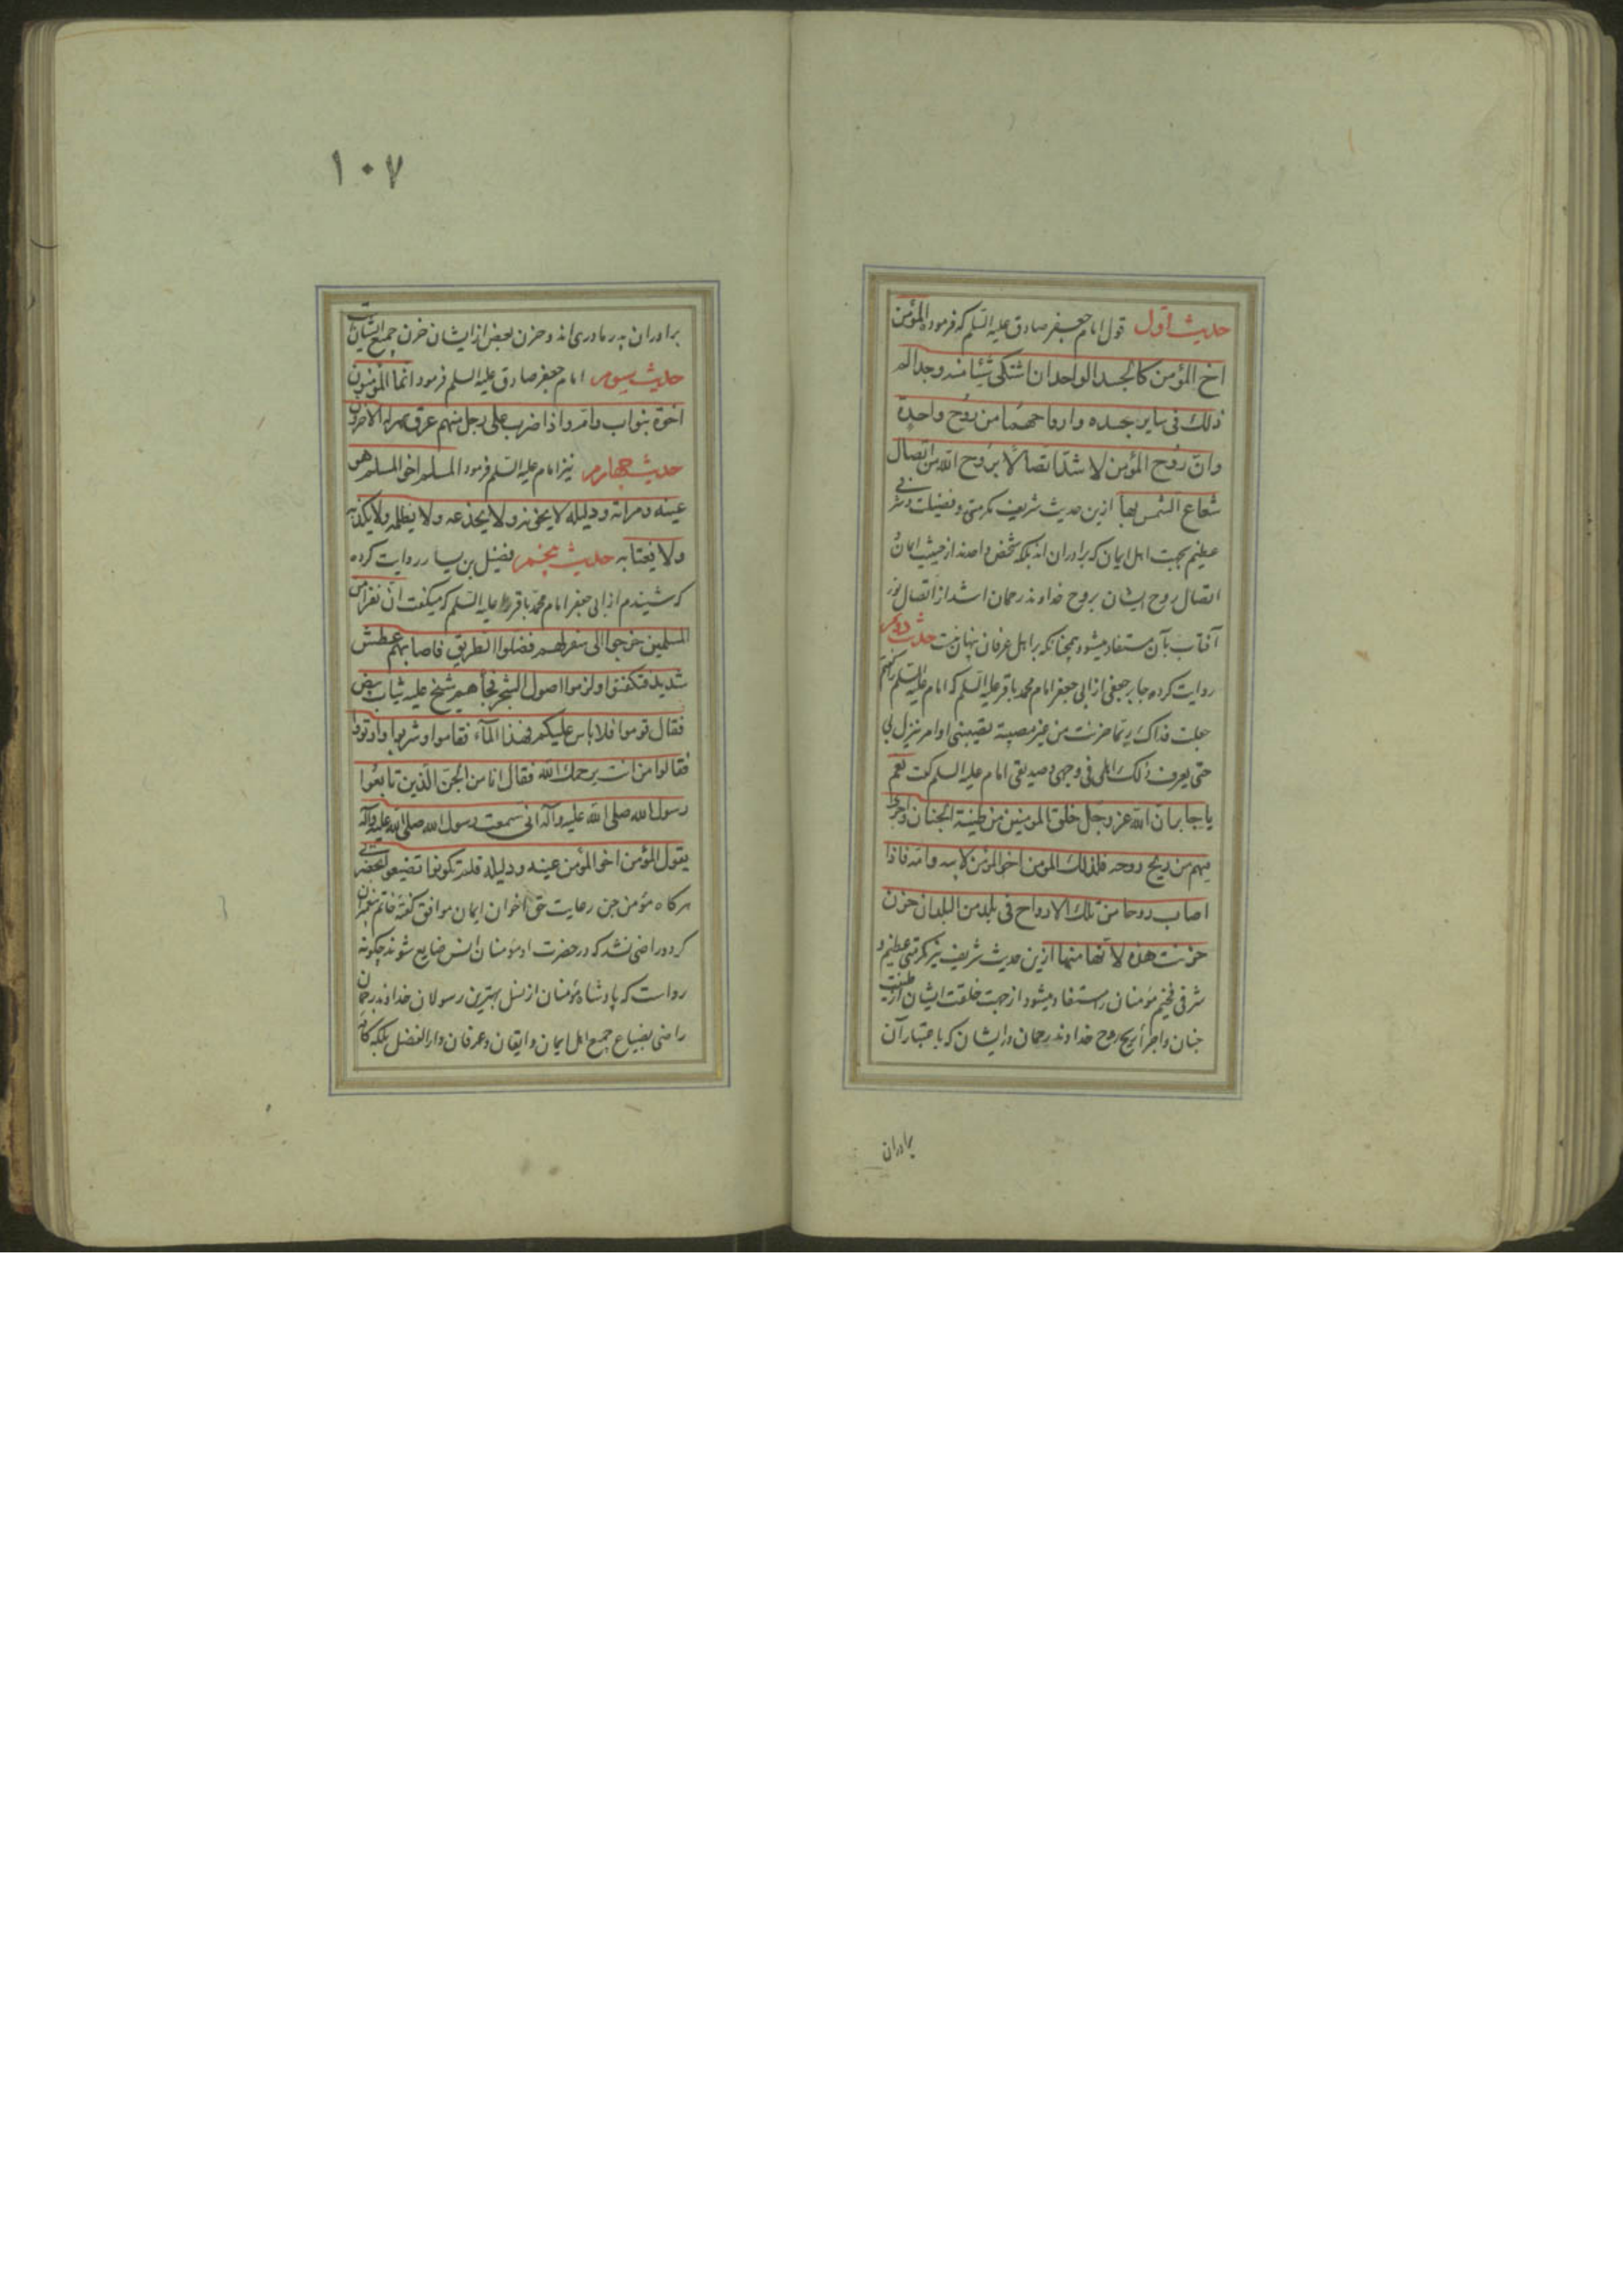 حدیث اول قول امام جعفر صادق علیه السلم که فرموده المؤمن
اخ المؤمن کالجسد الواحد ان اشتکی شیئا منه وجد الم
ذلک فی سایر جسده وارواحهما من روح واحدة
وان روح المؤمن لاشد اتصالا بروح الله من اتصال
شعاع الشمس بها ازین حدیث شریف مکرمتی و فضیلت و شرفی
عظیم بجهت اهل ایمان که برادران اند بلکه شخص واحدند از حیثیت ایمان و
اتصال روح ایشان بروح خداوند رحمان اشد از اتصال نور
آفتاب بآن مستفاد میشود همچنانکه بر اهل عرفان پنهان نیست حدیث دویم
روایت کرده جابر جعفی از ابی جعفر امام محمد باقر علیه السلم که امام علیه السلم را گفتم
جعلت فداک ربما حزنت من غیر مصیبة تصیبنی او امر ینزل بی
حتی یعرف ذلک اهلی فی وجهی و صدیقی امام علیه السلم گفت نعم
یا جابر ان الله عز وجل خلق المومنین من طینة الجنان واجری
فیهم من ریح روحه فلذلک المومن اخو المؤمن لابیه وامه فاذا
اصاب روحا من تلک الارواح فی بلد من البلدان حزن
حزنت هذه لانها منها ازین حدیث شریف نیز مکرمتی عظیم و
شرفی فخیم مؤمنان را مستفاد میشود از جهت خلقت ایشان از طینت
جنان و اجرای ریح روح خداوند رحمان در ایشان که باعتبار آن
برادران
١٠٧
برادران پدر مادری اند و حزن بعض از ایشان حزن جمیع ایشان است
حدیث سیوم امام جعفر صادق علیه السلم فرمود انما المؤمنون
اخوة بنو اب وام واذا ضرب علی رجل منهم عرق سهر له الاخرون
حدیث چهارم نیز امام علیه السلم فرمود المسلم اخو المسلم هو
عینه ومرآته ودلیله لا یخونه ولا یخدعه ولا یظلمه ولا یکذبه
ولا یغتابه حدیث پنجم فضیل بن یسار روایت کرده
که شنیدم از ابی جعفر امام محمد باقر را علیه السلم که میگفت ان نفرا من
المسلمین خرجوا الی سفر لهم فضلوا الطریق فاصابهم عطش
شدید فتکفنوا ولزموا اصول الشجر فجأهم شیخ علیه ثیاب بیض
فقال قوموا فلا باس علیکم فهذا المآء فقاموا وشربوا وارتووا
فقالوا من انت یرحمک الله فقال انا من الجن الذین تابعوا
رسول الله صلی الله علیه وآله انی سمعت رسول الله صلی الله علیه وآله
یقول المؤمن اخو المؤمن عینه ودلیله فلم تکونوا تضیعوا بحضرتی
هرگاه مؤمن جن رعایت حق اخوان ایمان موافق گفته خاتم پیغمبران
کرد و راضی نشد که در حضرت او مؤمنان انس ضایع شوند چگونه
رواست که پادشاه مؤمنان از نسل بهترین رسولان خداوند رحمان
راضی بضیاع جمیع اهل ایمان و ایقان و عرفان دار الفضل بلکه